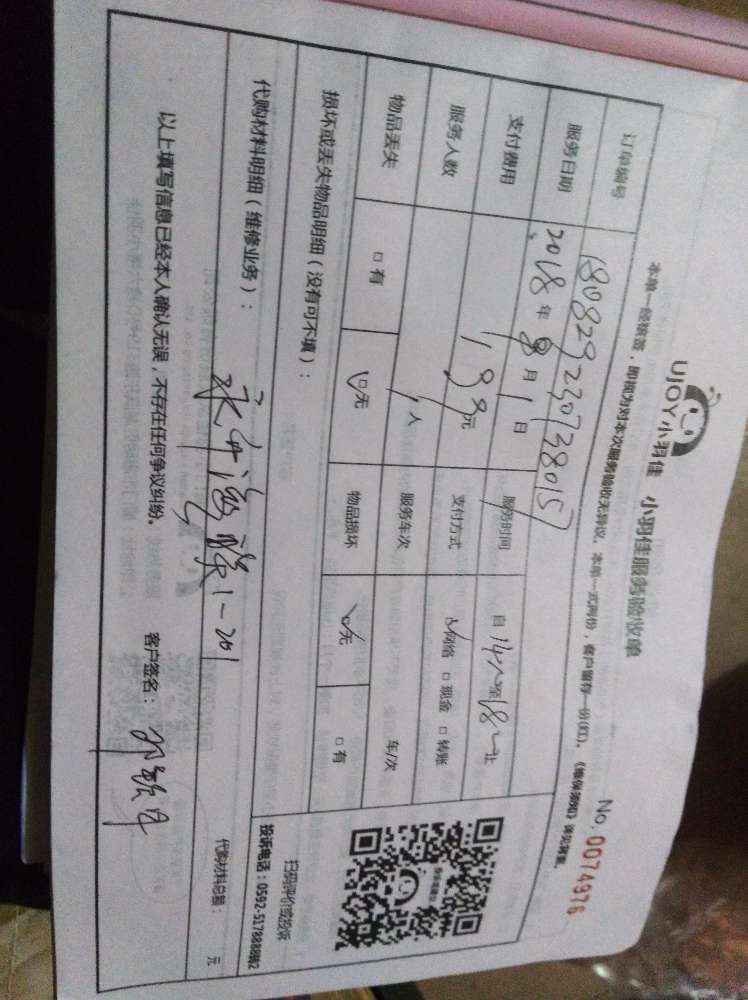 UJOY小羽佳 小羽佳服务验收单
No. 0074976
本单一经接签，即视为对本次服务验收无异议。本单一式两份，客户留存一份(红)。《维保须知》详见背面。
订单编号 180829230738015
服务日期 2018年 月1日 服务时间 自14 至18 止
支付费用 元 支付方式 ☑网络 □现金 □转账
服务人数 1人 服务车次 车/次
物品丢失 □有 ☑无 物品损坏 ☑无 □有
损坏或丢失物品明细（没有可不填）：
扫码评价或投诉
投诉电话：0592-5178888转2
代购材料明细（维修业务）：
1-201
代购材料总额： 元
以上填写信息已经本人确认无误，不存在任何争议纠纷。 客户签名：